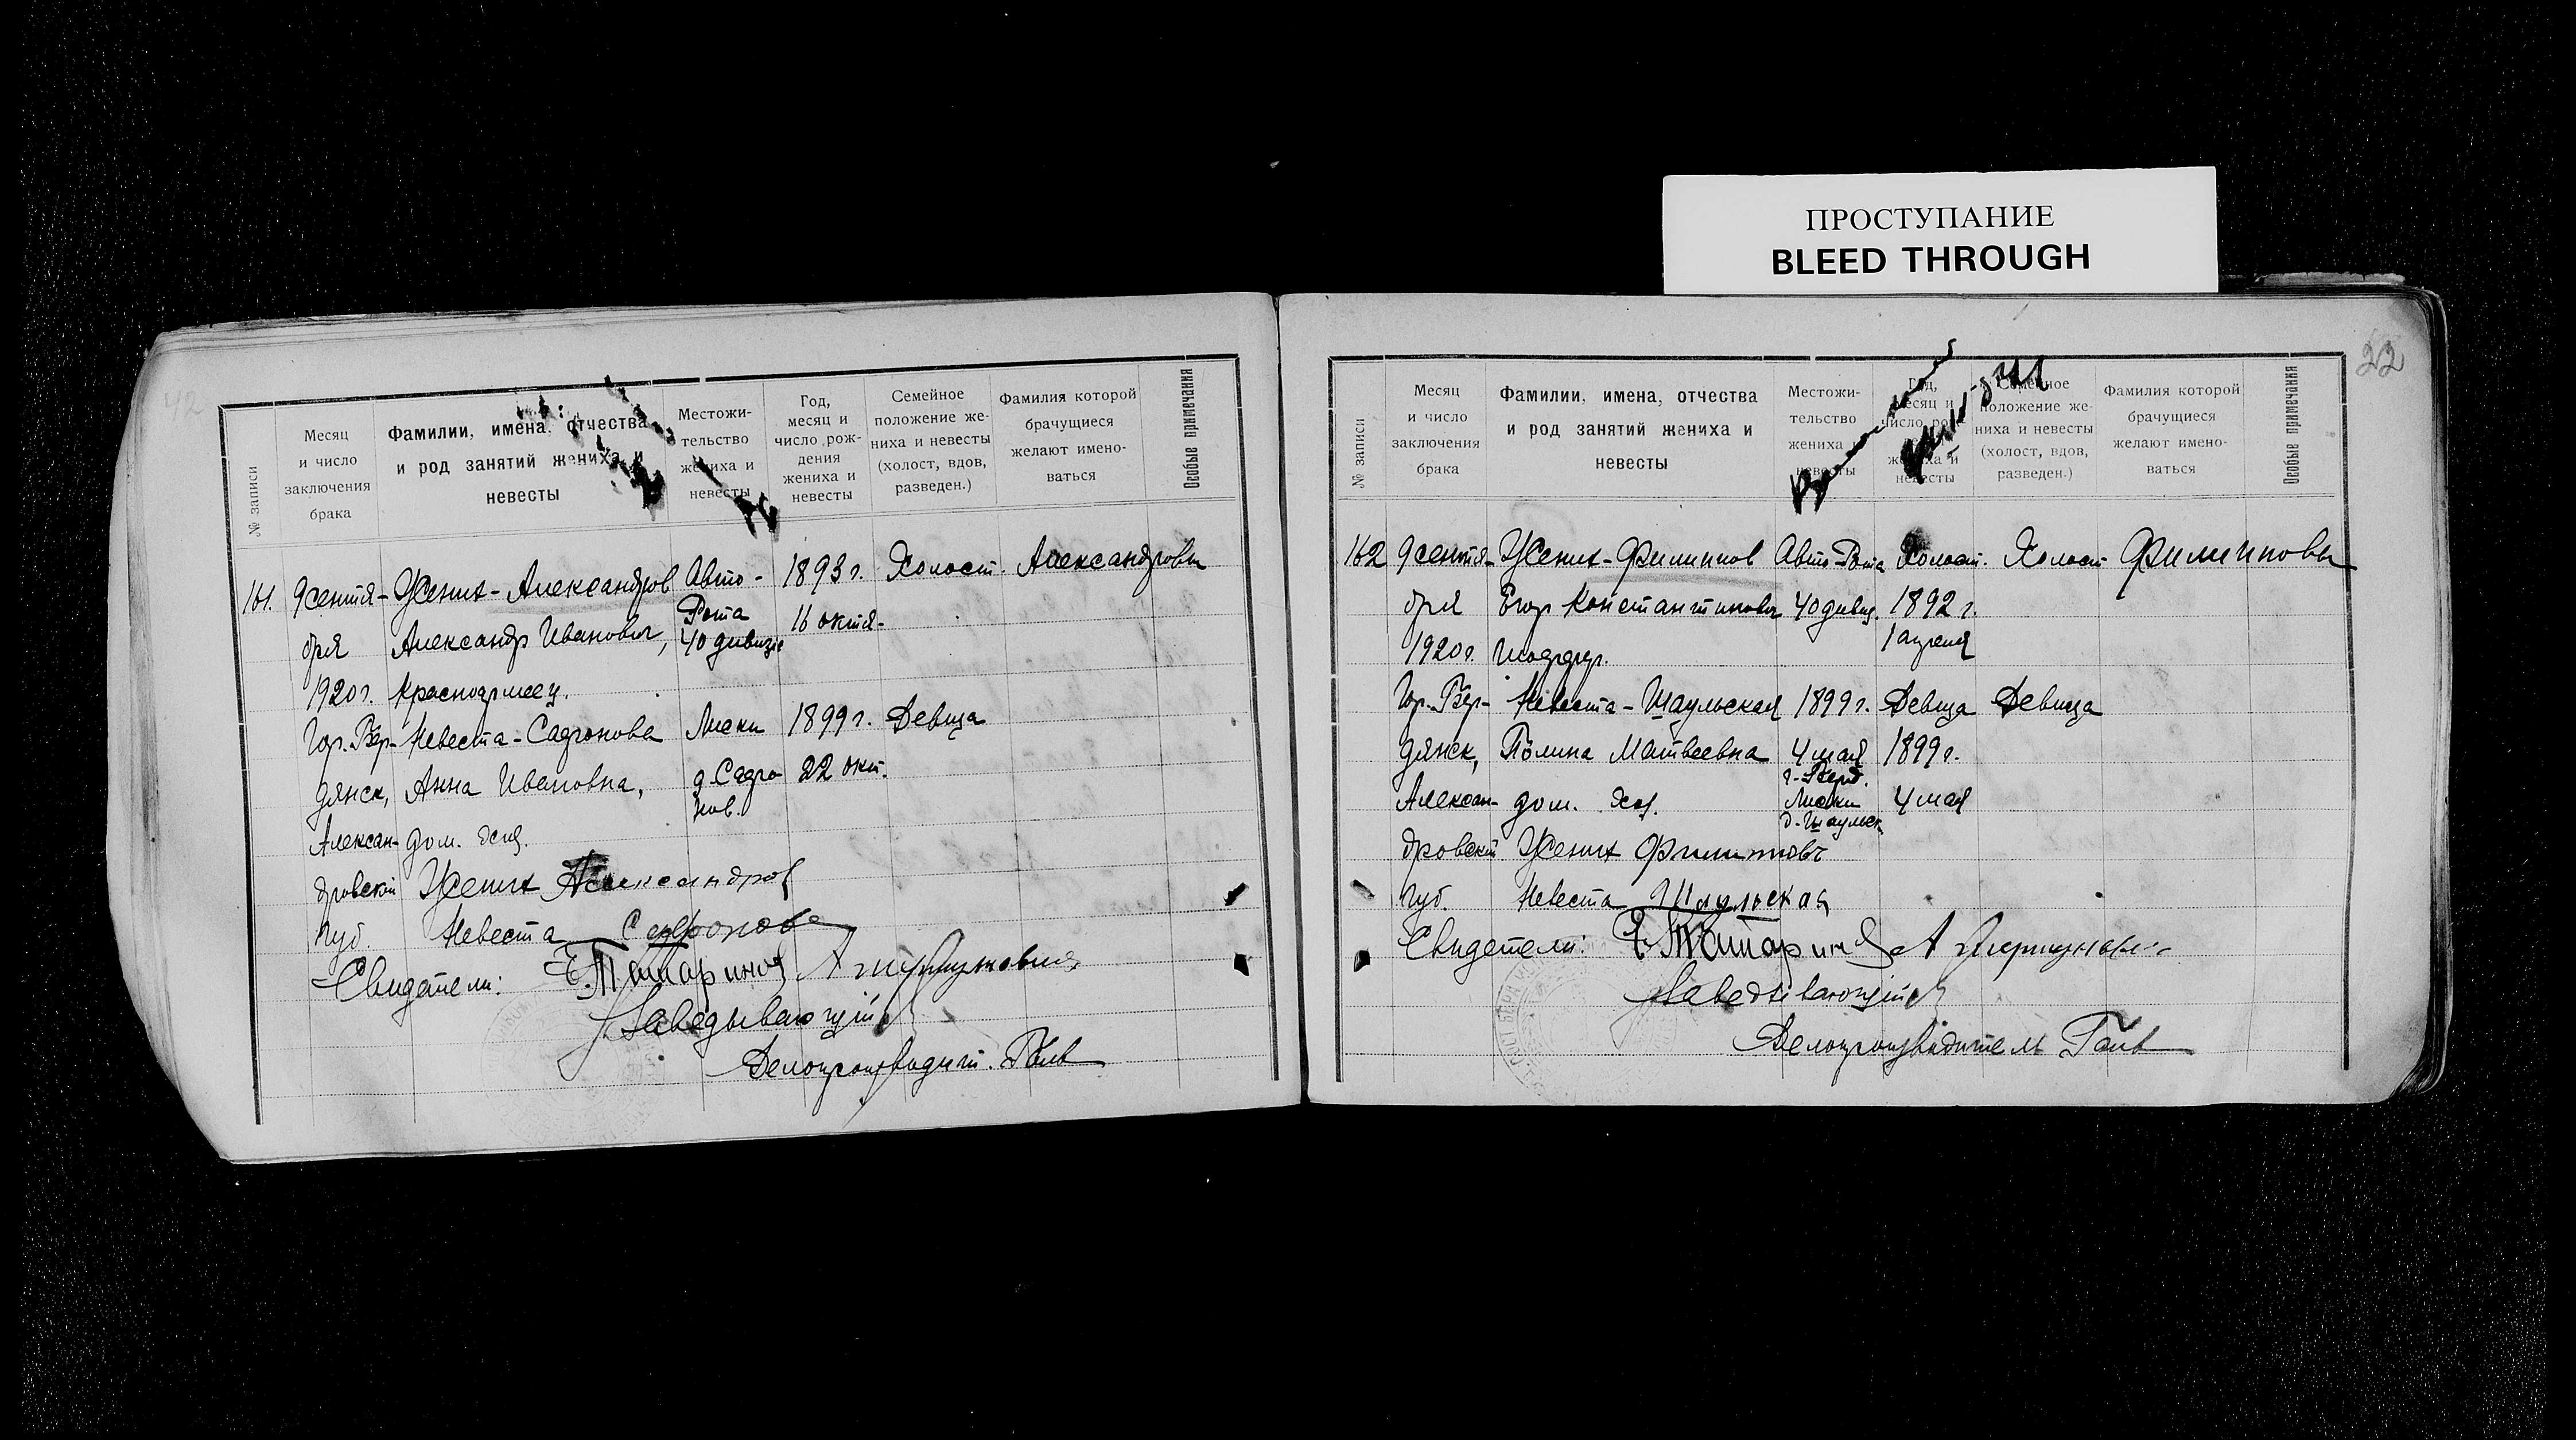 ПРОСТУПАНИЕ
BLEED THROUGH
22
№ записи
Месяц и число заключения брака
Фамилии, имена, отчества и род занятий жениха и невесты
Местожительство жениха и невесты
Год, месяц и число рождения жениха и невесты
Семейное положение жениха и невесты (холост, вдов, разведен.)
Фамилия которой брачущиеся желают именоваться
Особые примечания
161. 9 сентя- Жених - Александров Авто- 1893 г. Холост. Александровы
бря Александр Иванович, Рота 16 октя-
40 дивизіи
1920 г. Красноармеец.
Гор. Бер- Невеста - Сафонова Лиски 1899 г. Девица
дянск, Анна Ивановна, д. Сафо- 22 окт.
нов.
Алексан- дом. хоз.
дровской Жених Александров
губ. Невеста Сафонова
Свидетели: Татаринов
Заведывающий
Делопроизводит.
№ записи
Месяц и число заключения брака
Фамилии, имена, отчества и род занятий жениха и невесты
Местожительство жениха и невесты
Год, месяц и число рождения жениха и невесты
Семейное положение жениха и невесты (холост, вдов, разведен.)
Фамилия которой брачущиеся желают именоваться
Особые примечания
162 9 сентя- Жених - Филиппов Авто-Рота Холост. Холост Филипповы
бря Егор Константинович 40 дивиз. 1892 г.
1920 г. 1 апреля
Гор. Бер- Невеста - Шаульская 1899 г. Девица Девица
дянск, Полина Матвеевна 4 мая 1899 г.
г. Берд.
Алексан- дом. хоз. Лиски 4 мая
д. Шаульск.
дровской Жених Филипповъ
губ. Невеста Шаульская
Свидетели: Татаринов
Заведывающий
Делопроизводитель